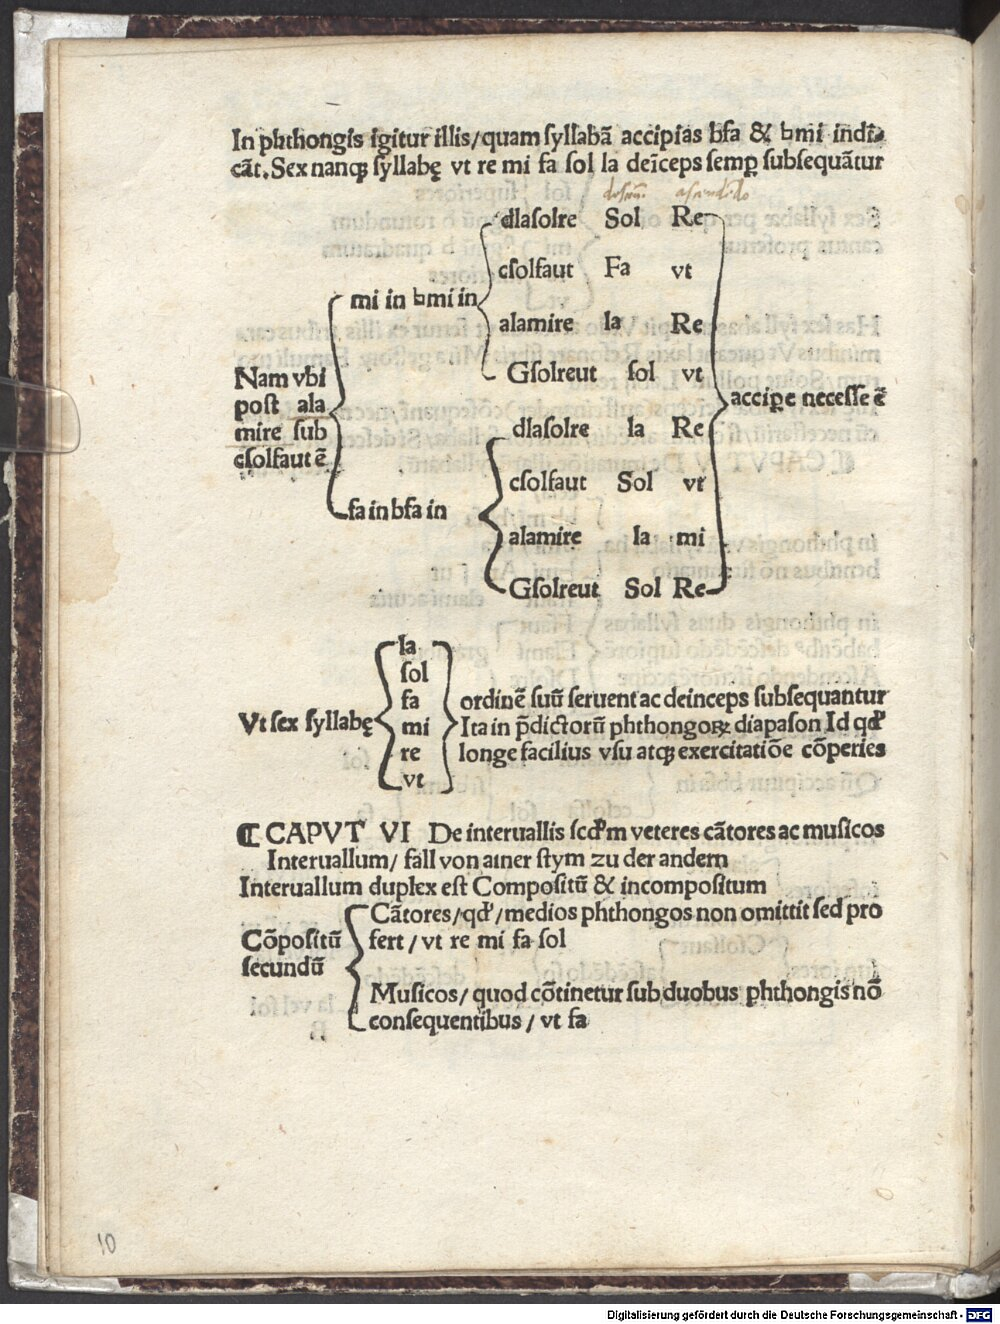 In phthongis igitur illis/quam ſyllabã accipias bfa & ♮mi indi⸗
cãt. Sex nanqꝫ ſyllabę vt re mi fa ſol la deīceps ſemꝑ ſubſequãtur
dlaſolre Sol Re
cſolfaut Fa vt
mi in ♮mi in
alamire la Re
Gſolreut ſol vt
Nam vbi
poſt ala
mire ſub
cſolfaut ē
accipe neceſſe ē
dlaſolre la Re
cſolfaut Sol vt
fa in bfa in
alamire la mi
Gſolreut Sol Re
Vt ſex ſyllabę
la
ſol
fa
mi
re
vt
ordinē ſuū ſeruent ac deinceps ſubſequantur
Ita in p̄dictorū phthongoꝝ diapaſon Id qđ
longe facilius vſu atqꝫ exercitatiōe cõperies
¶ CAPVT VI De interuallis ſcđm veteres cãtores ac muſicos
Interuallum/ fall von ainer ſtym zu der andern
Interuallum duplex eſt Compoſitū & incompoſitum
Cõpoſitū
ſecundū
Cãtores/qđ/medios phthongos non omittit ſed pro
fert/vt re mi fa ſol
Muſicos/quod cõtinetur ſub duobus phthongis nõ
conſequentibus/vt fa
10
Digitalisierung gefördert durch die Deutsche Forschungsgemeinschaft - DFG